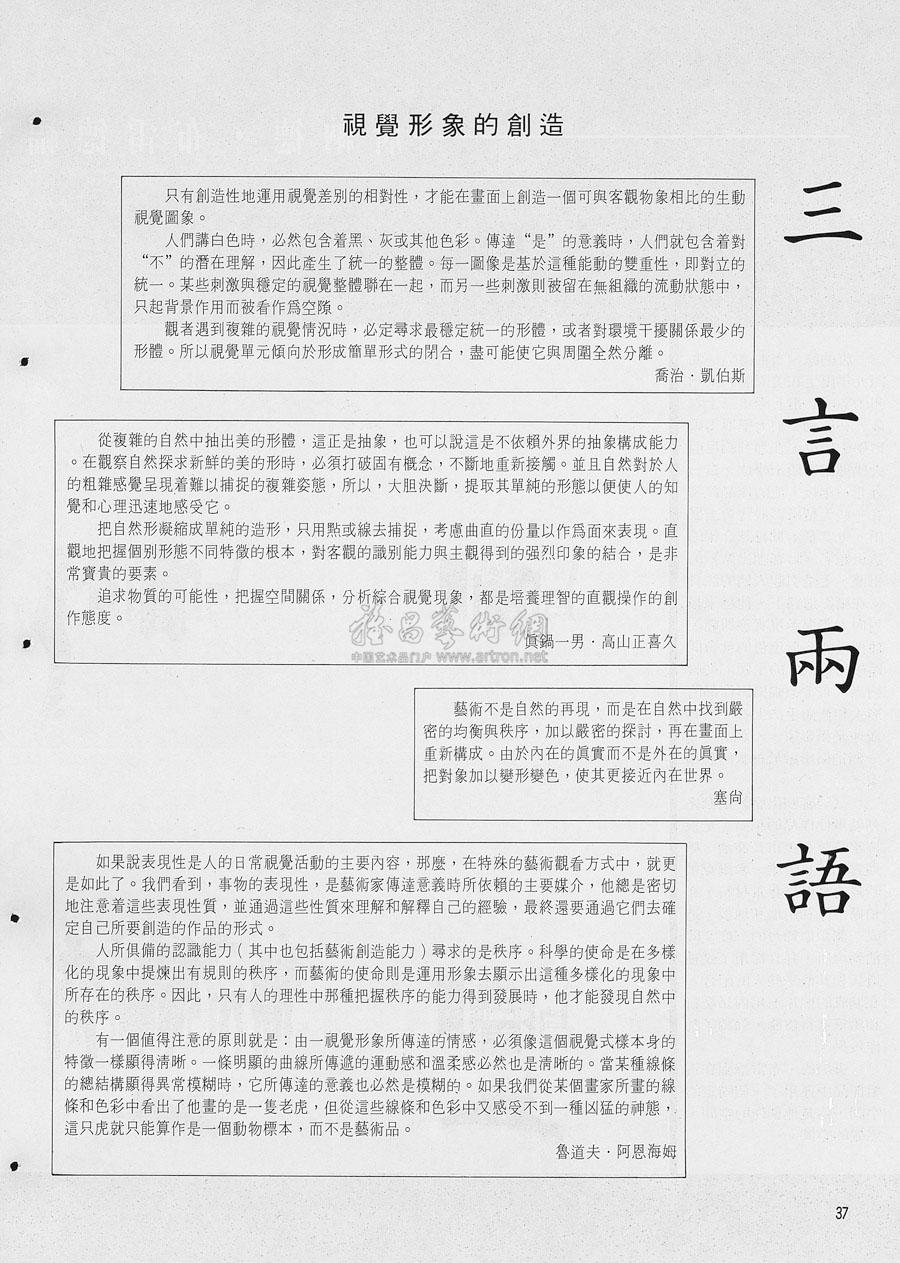 視覺形象的創造
三言兩語
只有創造性地運用視覺差别的相對性，才能在畫面上創造一個可與客觀物象相比的生動
視覺圖象。
人們講白色時，必然包含着黑、灰或其他色彩。傳達“是”的意義時，人們就包含着對
“不”的潛在理解，因此產生了統一的整體。每一圖像是基於這種能動的雙重性，即對立的
統一。某些刺激與穩定的視覺整體聯在一起，而另一些刺激則被留在無組織的流動狀態中，
只起背景作用而被看作爲空隙。
觀者遇到複雜的視覺情況時，必定尋求最穩定統一的形體，或者對環境干擾關係最少的
形體。所以視覺單元傾向於形成簡單形式的閉合，盡可能使它與周圍全然分離。
喬治·凱伯斯
從複雜的自然中抽出美的形體，這正是抽象，也可以說這是不依賴外界的抽象構成能力
。在觀察自然探求新鮮的美的形時，必須打破固有概念，不斷地重新接觸。並且自然對於人
的粗雜感覺呈現着難以捕捉的複雜姿態，所以，大胆決斷，提取其單純的形態以便使人的知
覺和心理迅速地感受它。
把自然形凝縮成單純的造形，只用點或線去捕捉，考慮曲直的份量以作爲面來表現。直
觀地把握個别形態不同特徵的根本，對客觀的識别能力與主觀得到的强烈印象的結合，是非
常寶貴的要素。
追求物質的可能性，把握空間關係，分析綜合視覺現象，都是培養理智的直觀操作的創
作態度。
眞鍋一男·高山正喜久
雅昌藝術網
中国艺术品门户 www.artron.net
藝術不是自然的再現，而是在自然中找到嚴
密的均衡與秩序，加以嚴密的探討，再在畫面上
重新構成。由於內在的眞實而不是外在的眞實，
把對象加以變形變色，使其更接近內在世界。
塞尙
如果說表現性是人的日常視覺活動的主要內容，那麼，在特殊的藝術觀看方式中，就更
是如此了。我們看到，事物的表現性，是藝術家傳達意義時所依賴的主要媒介，他總是密切
地注意着這些表現性質，並通過這些性質來理解和解釋自己的經驗，最終還要通過它們去確
定自己所要創造的作品的形式。
人所俱備的認識能力（其中也包括藝術創造能力）尋求的是秩序。科學的使命是在多樣
化的現象中提煉出有規則的秩序，而藝術的使命則是運用形象去顯示出這種多樣化的現象中
所存在的秩序。因此，只有人的理性中那種把握秩序的能力得到發展時，他才能發現自然中
的秩序。
有一個值得注意的原則就是：由一視覺形象所傳達的情感，必須像這個視覺式樣本身的
特徵一樣顯得淸晰。一條明顯的曲線所傳遞的運動感和溫柔感必然也是淸晰的。當某種線條
的總結構顯得異常模糊時，它所傳達的意義也必然是模糊的。如果我們從某個畫家所畫的線
條和色彩中看出了他畫的是一隻老虎，但從這些線條和色彩中又感受不到一種凶猛的神態，
這只虎就只能算作是一個動物標本，而不是藝術品。
魯道夫·阿恩海姆
37